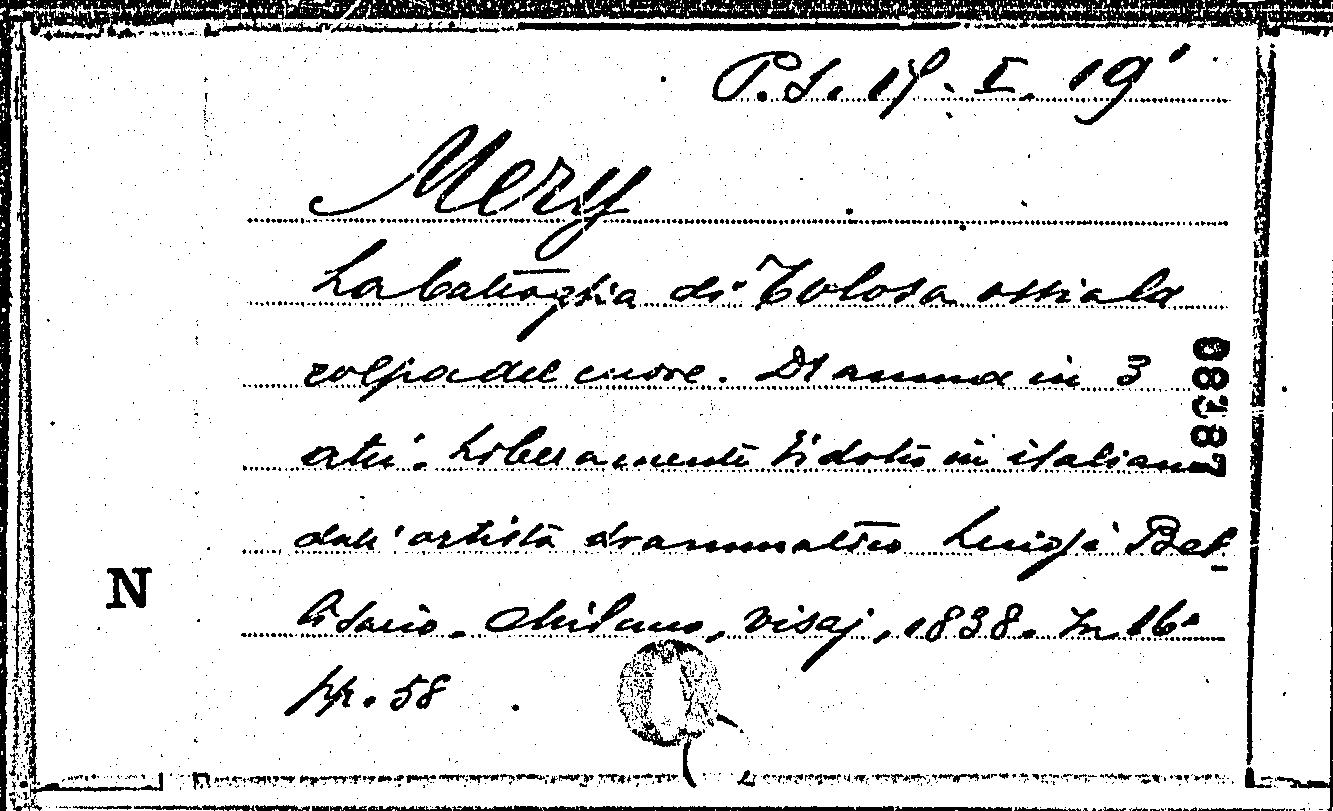 P.S. 15. I. 19'
Mery
La battaglia di Tolosa ossia la
colpa del cuore. Dramma in 3
atti. Liberamente ridotto in italiano
dall'artista drammatico Luigi Bel-
lisario. Milano, Visaj, 1838. In 16°
pp. 58
N
08387